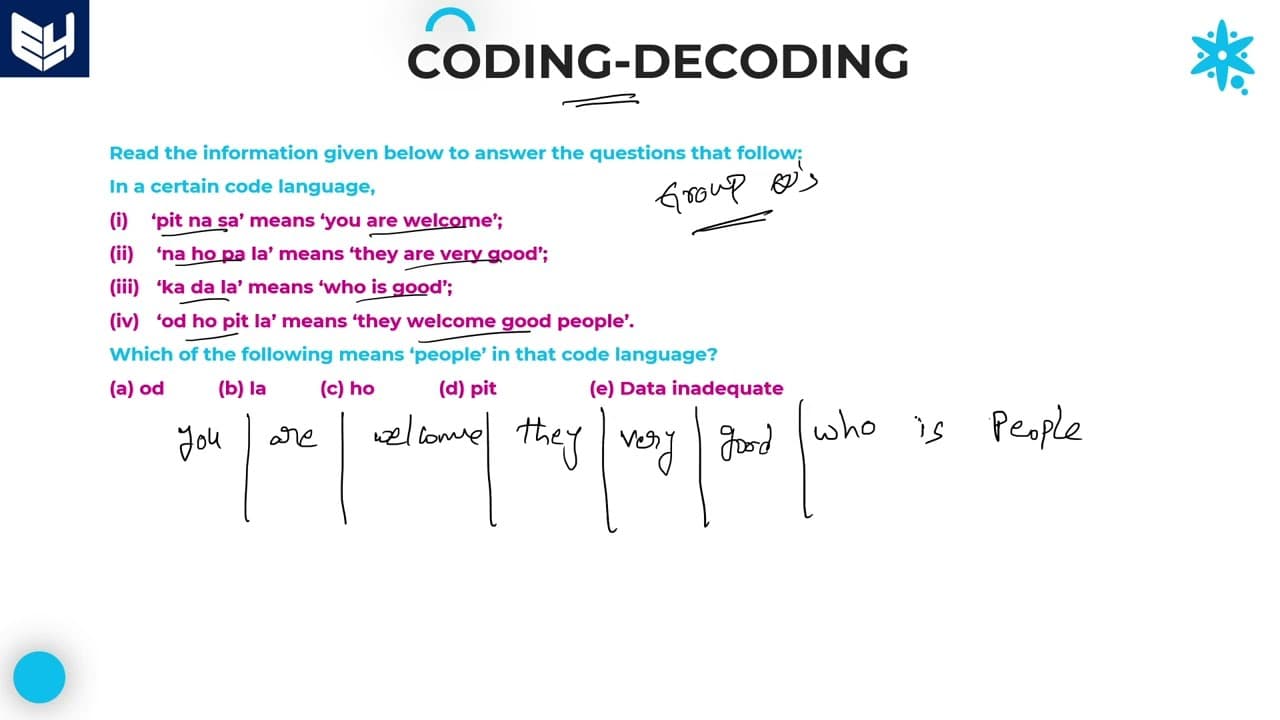 EY
CODING-DECODING
Read the information given below to answer the questions that follow:
In a certain code language,
Group Q's
(i) ‘pit na sa’ means ‘you are welcome’;
(ii) ‘na ho pa la’ means ‘they are very good’;
(iii) ‘ka da la’ means ‘who is good’;
(iv) ‘od ho pit la’ means ‘they welcome good people’.
Which of the following means ‘people’ in that code language?
(a) od (b) la (c) ho (d) pit (e) Data inadequate
you are welcome they very good who is People